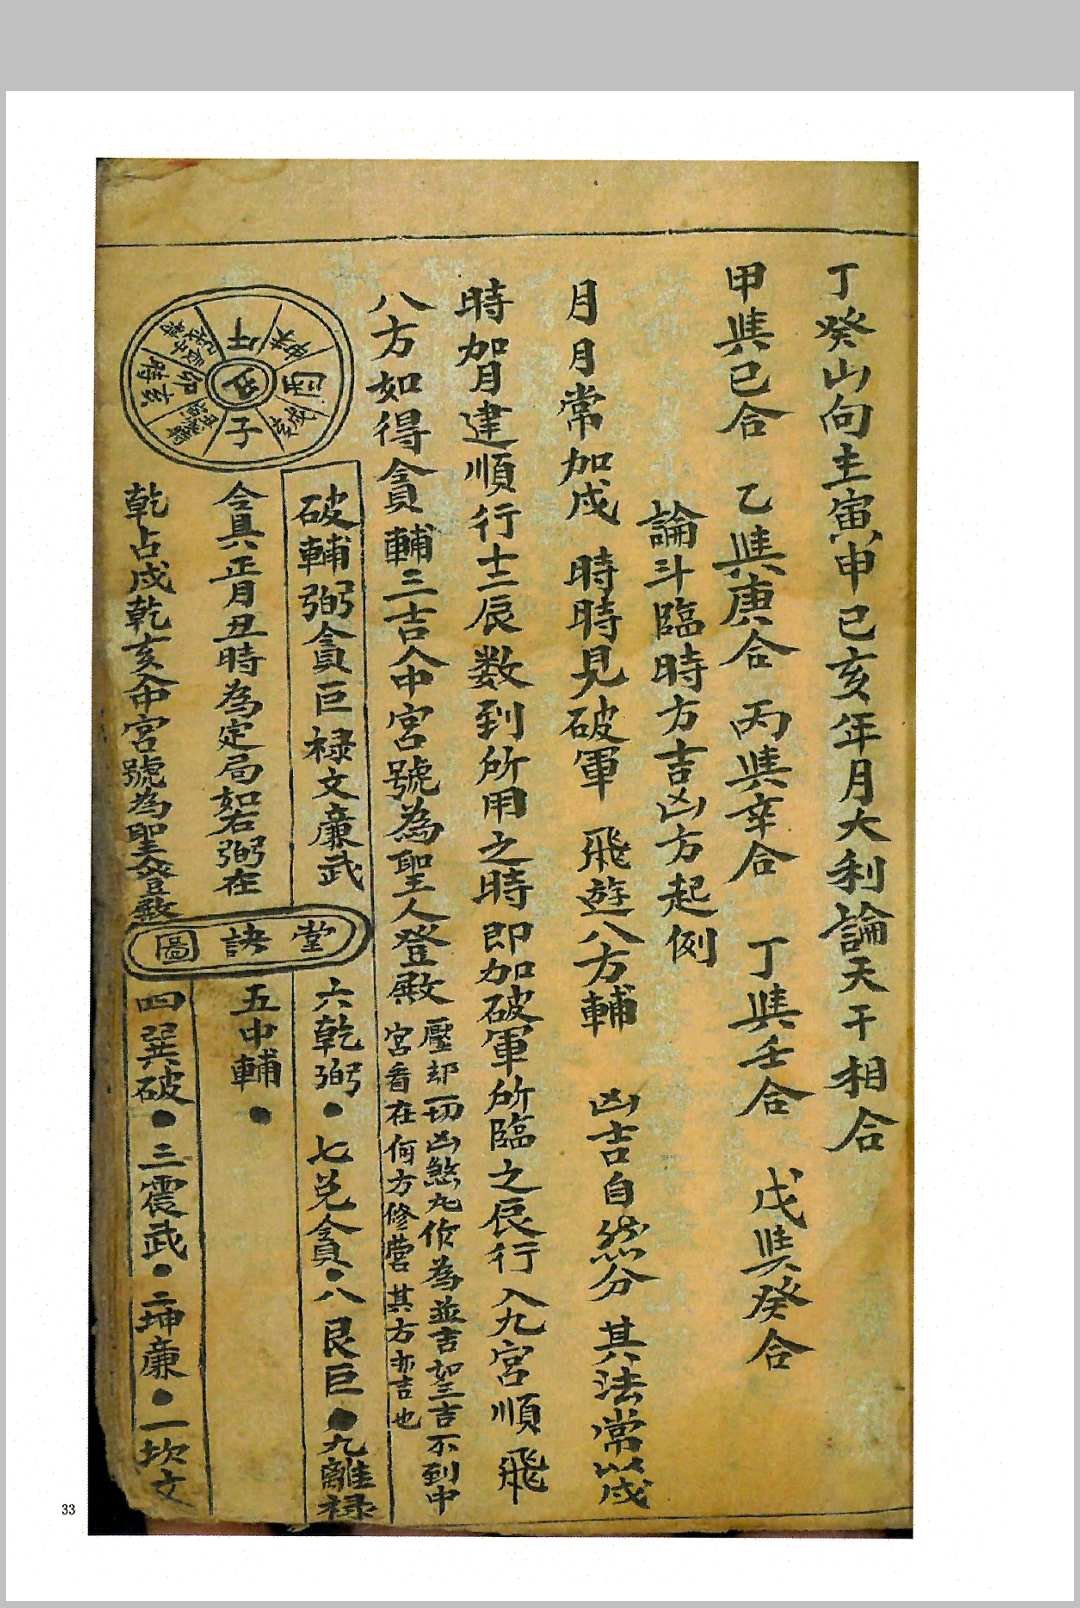 丁癸山向主寅申巳亥年月大利論天干相合
甲與己合 乙與庚合 丙與辛合 丁與壬合 戊與癸合
論斗臨時方吉凶方起例
月月常加戌 時時見破軍 飛遊八方輔 凶吉自然分 其法常以戌
時加月建順行十二辰数到所用之時即加破軍所臨之辰行入九宮順飛
八方如得貪輔三吉入中宮號為聖人登殿
壓却一切凶煞九作為並吉如三吉不到中
宮看在何方修營其方亦吉也
破輔弼貪巨禄文廉武
令具六正月丑時為定局如右弼在
乾占戌乾亥入中宮號為聖人登殿
堂訣圖
六乾弼●七兌貪●八艮巨●九離禄
五中輔●
四巽破●三震武●二坤廉●一坎文
午
酉
子
卯
戌亥
33